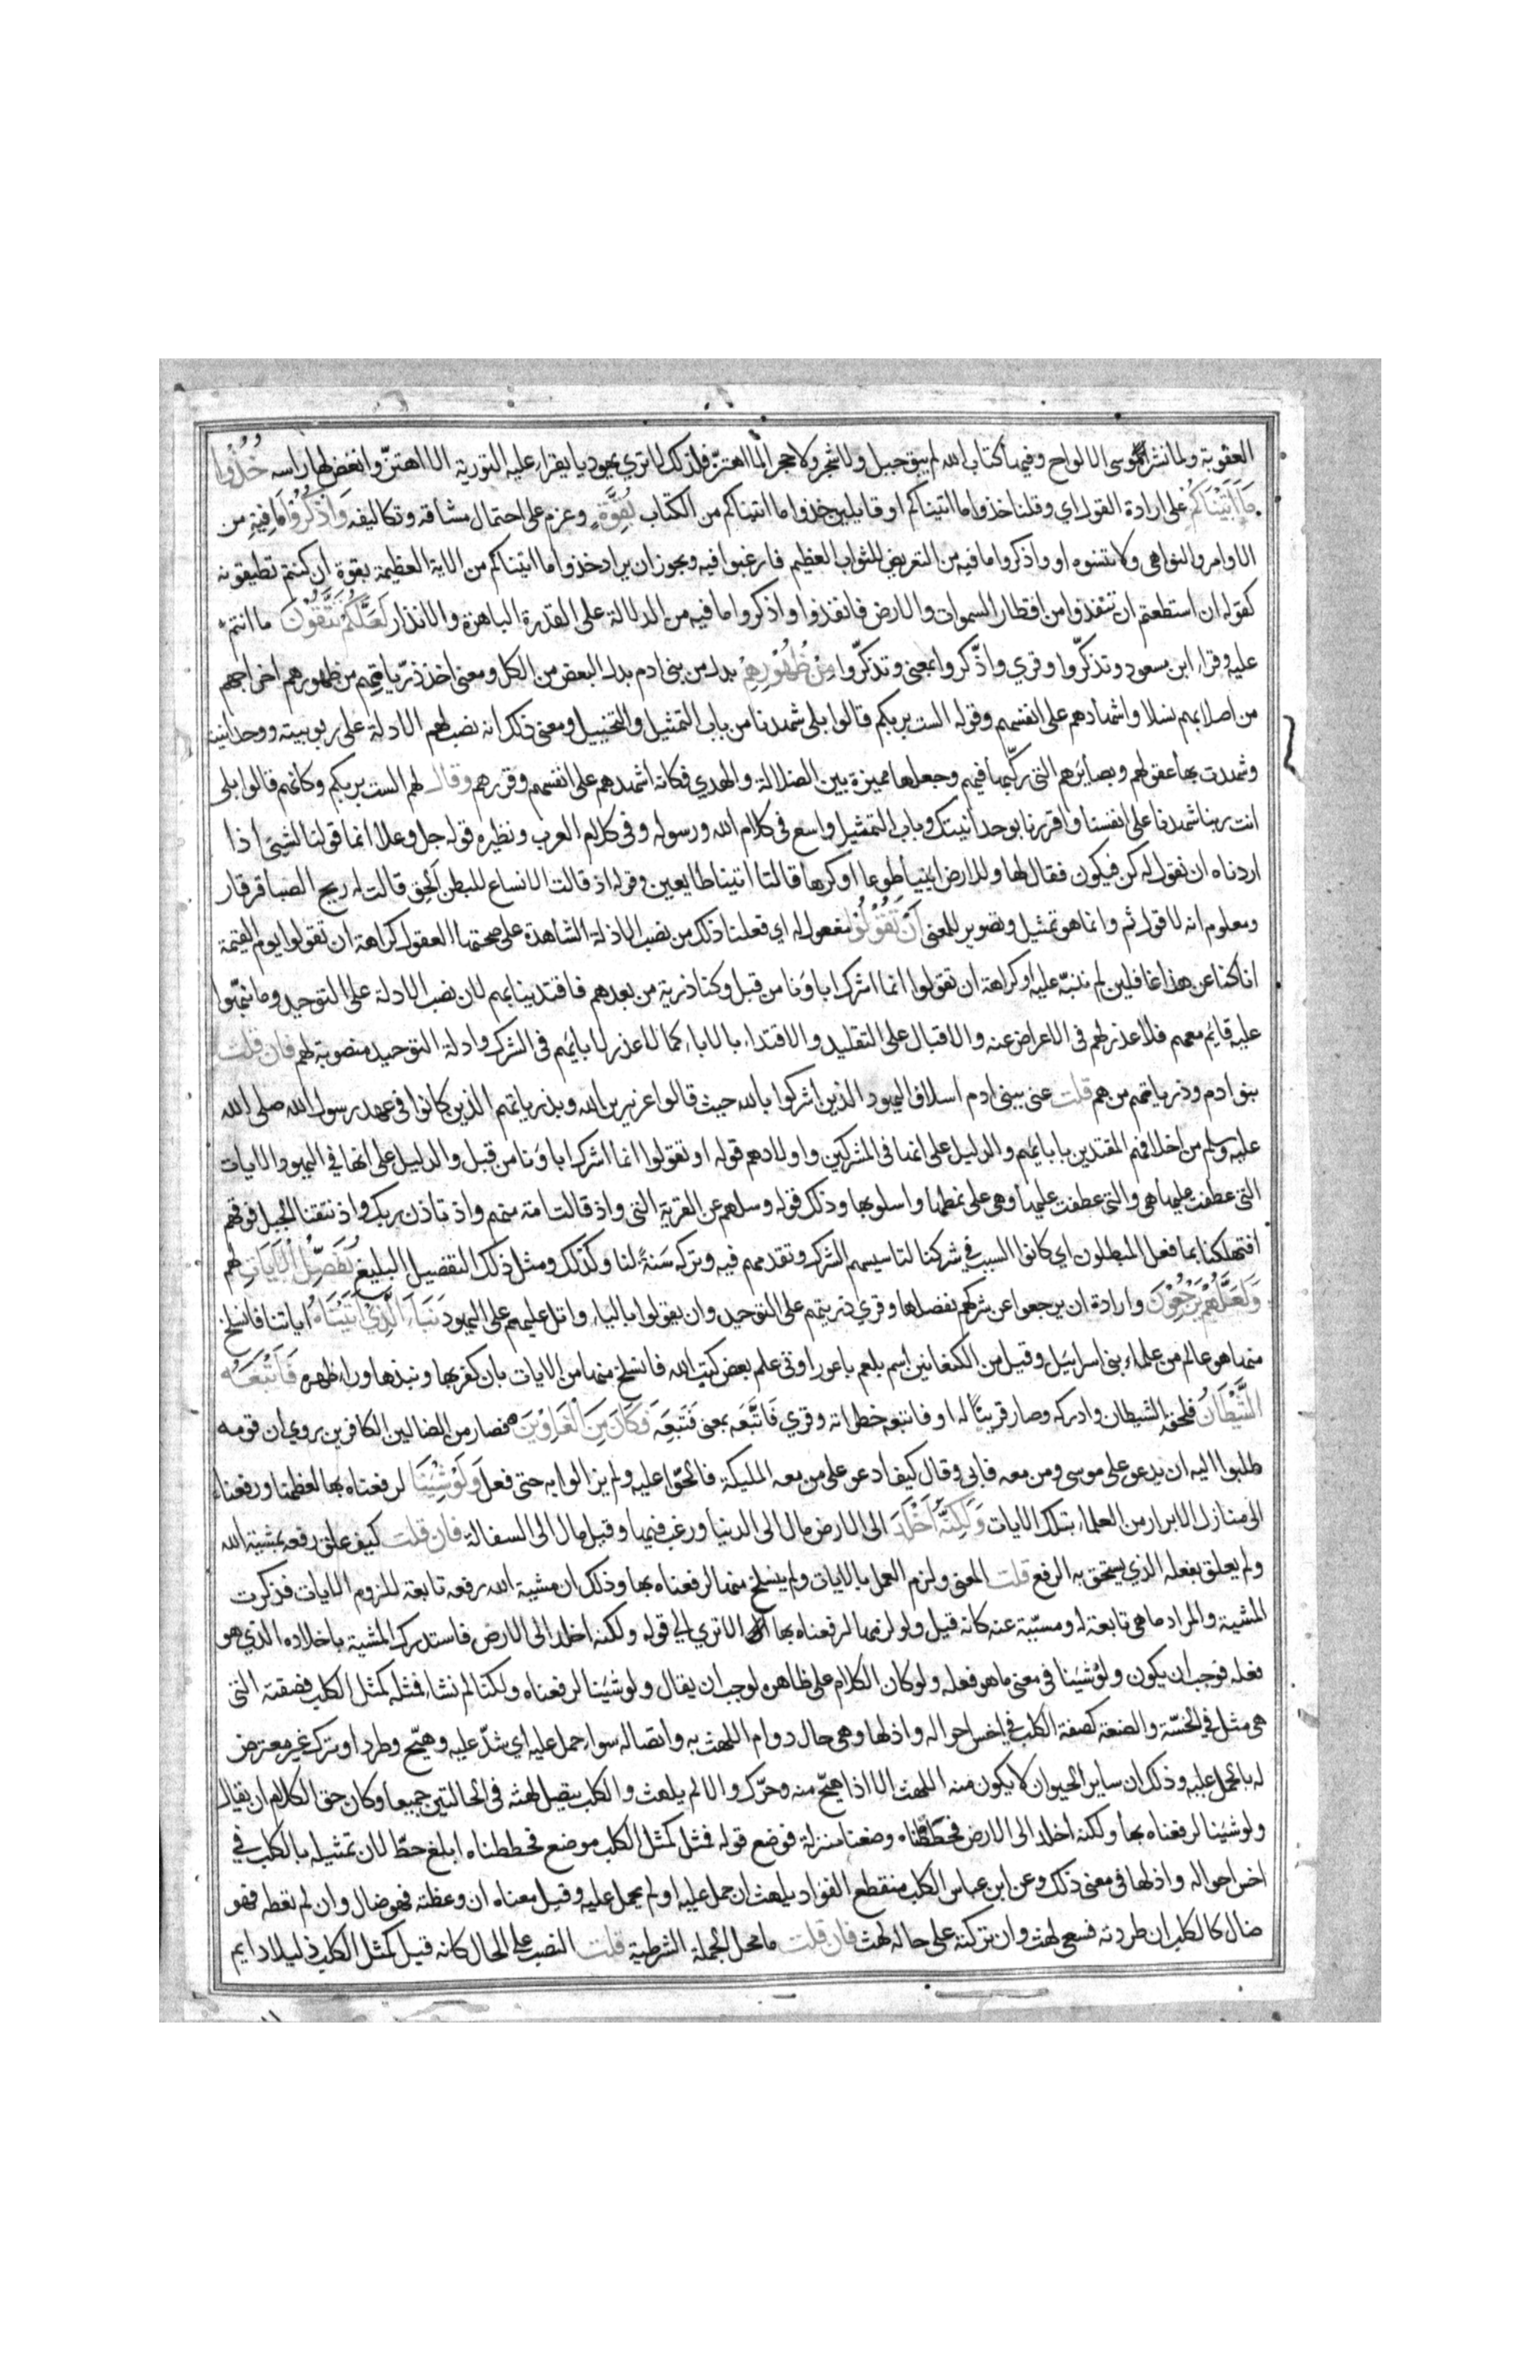 العقوبة ولما نشر موسى الالواح وفيها كتاب الله لم يبق جبل ولا شجر ولا حجر الا اهتز فلذلك لا ترى يهوديا يقراء عليه التورية الا اهتزّ وانغض لها راسه خُذُوا
مَا اٰتَيْنَاكُمْ على ارادة القول اي وقلنا خذوا ما اتيناكم او قايلين خذوا ما اتيناكم من الكتاب بِقُوَّةٍ وعزم على احتمال مشاقه وتكاليفه وَاذْكُرُوا مَا فِيهِ من
الاوامر والنواهى ولا تنسوه او واذكروا ما فيه من التعريض للثواب العظيم فارغبوا فيه ويجوز ان يراد خذوا ما اتيناكم من الاية العظيمة بقوة ان كنتم تطيقونه
كقوله ان استطعتم ان تنفذوا من اقطار السموات والارض فانفذوا واذكروا ما فيه من الدلالة على القدرة الباهرة والانذار لَعَلَّكُمْ تَتَّقُونَ ما انتم
عليه وقراء ابن مسعود وتذكّروا وقري واذّكروا بمعنى وتذكّروا مِنْ ظُهُورِهِمْ بدل من بنى ادم بدل البعض من الكل ومعنى اخذ ذرّياتهم من ظهورهم اخراجهم
من اصلابهم نسلا واشهادهم على انفسهم وقوله الست بربكم قالوا بلى شهدنا من باب التمثيل والتخييل ومعنى ذلك انه نصب لهم الادلة على ربوبيته ووحدانيته
وشهدت بها عقولهم وبصايرهم التى ركّبها فيهم وجعلها مميزة بين الضلالة والهدي فكانه اشهدهم على انفسهم وقررهم وقال لهم الست بربكم وكانهم قالوا بلى
انت ربنا شهدنا على انفسنا واقررنا بوحدانيتك وباب التمثيل واسع فى كلام الله ورسوله وفى كلام العرب ونظيره قوله جل وعلا انما قولنا لشيئ اذا
اردناه ان نقول له كن فيكون فقال لها وللارض ايتيا طوعا او كرها قالتا اتينا طايعين وقوله اذ قالت الانساع للبطن الحق قالت له ريح الصبا قرقار
ومعلوم انه لا قول ثم وانما هو تمثيل وتصوير للمعنى اَنْ تَقُوْلُوْا مفعول له اي فعلنا ذلك من نصب الادلة الشاهدة على صحتها العقول كراهة ان تقولوا يوم القيمة
انا كنا عن هذا غافلين لم ننبّه عليه او كراهة ان تقولوا انما اشرك اباؤنا من قبل وكنا ذرية من بعدهم فاقتدينا بهم لان نصب الادلة على التوحيد وما نبّهوا
عليه قايم معهم فلا عذر لهم فى الاعراض عنه والاقبال على التقليد والاقتداء بالاباء كما لا عذر لابايهم فى الشرك وادلة التوحيد منصوبة لهم فان قلت
بنو ادم وذرياتهم من هم قلت عنى ببنى ادم اسلاف اليهود الذين اشركوا بالله حيث قالوا عزير بن الله وبذرياتهم الذين كانوا فى عهد رسول الله صلى الله
عليه وسلم من اخلافهم المقتدين بابايهم والدليل على انها فى المشركين واولادهم قوله او تقولوا انما اشرك اباؤنا من قبل والدليل على انها في اليهود الايات
التى عطفت عليها هى والتى عطفت عليها وهى على نمطها واسلوبها وذلك قوله وسلهم عن القرية التى واذ قالت امة منهم واذ تاذن ربك واذ نتقنا الجبل فوقهم
افتهلكنا بما فعل المبطلون اي كانوا السبب في شركنا لتاسيسهم الشرك وتقدمهم فيه وتركه سَنةً لنا وكذلك ومثل ذلك التفصيل البليغ نُفَصِّلُ الْاٰيَاتِ لهم
وَلَعَلَّهُمْ يَرْجِعُوْنَ وارادة ان يرجعوا عن شركهم نفصلها وقري ذريتهم على التوحيد وان يقولوا بالياء واتل عليهم على اليهود نَبَاءَ الَّذِيْ اٰتَيْنَاهُ اياتنا فانسلخ
منها هو عالم من علماء بنى اسرائيل وقيل من الكنعانيين اسم بلعم باعور اوتى علم بعض كتب الله فانسلخ منها من الايات بان كفر بها ونبذها وراء ظهره فَاَتْبَعَهُ
الشَّيْطَانُ فلحقه الشيطان وادركه وصار قريناً له او فاتبعه خطواته وقري فَاتَّبَعَه بمعنى فَتَبِعَه فَكَانَ مِنَ الْغَاوِيْنَ فصار من الضالين الكافرين روي ان قومه
طلبوا اليه ان يدعو على موسى ومن معه فابى وقال كيف ادعو على من معه المليكة فالحّوا عليه ولم يزالوا به حتى فعل وَلَوْ شِيْنَا لرفعناه بها لعظمنا ورفعناه
الى منازل الابرار من العلماء بتلك الايات وَلٰكِنَّهٗ اَخْلَدَ الى الارض مال الى الدنيا ورغب فيها وقيل مال الى السفالة فان قلت كيف علق رفعه بمشية الله
ولم يعلق بفعله الذي يستحق به الرفع قلت المعنى ولزم العمل بالايات ولم ينسلخ منها لرفعناه بها وذلك ان مشية الله رفعه تابعة للزوم الايات فذكرت
المشية والمراد ما هى تابعة له ومسبّبة عنه كانه قيل ولو لزمها لرفعناه بها الا ترى الى قوله ولكنه اخلد الى الارض فاستدرك المشية باخلاده الذي هو
فعله فوجب ان يكون ولو شينا فى معنى ما هو فعله ولو كان الكلام على ظاهره لوجب ان يقال ولو شينا لرفعناه ولكنا لم نشاء فمثله كمثل الكلب فصفته التى
هى مثل فى الخسّة والضعة كصفة الكلب فى اخس احواله واذلها وهى حال دوام اللهث به واتصاله سواء حمل عليه اي شدّ عليه وهيّج وطرد او ترك غير معترض
له بالحمل عليه وذلك ان ساير الحيوان لا يكون منه اللهث الا اذا هيّج منه وحرّك والا لم يلهث والكلب يتصل لهثه فى الحالتين جميعا وكان حق الكلام ان يقال
ولو شينا لرفعناه بها ولكنه اخلد الى الارض فحططناه وضعنا منزلة فوضع قوله فمثل كمثل الكلب موضع فحططناه ابلغ حطّ لان تمثيله بالكلب في
اخس احواله واذلها فى معنى ذلك وعن ابن عباس الكلب منقطع الفواد يلهث ان حمل عليه او لم يحمل عليه وقيل معناه ان وعظته فهو ضال وان لم تعظه فهو
ضال كالكلب ان طردته فسعى لهث وان تركته على حاله لهث فان قلت ما محل الجملة الشرطية قلت النصب على الحال كانه قيل كمثل الكلب ذليلا دايم